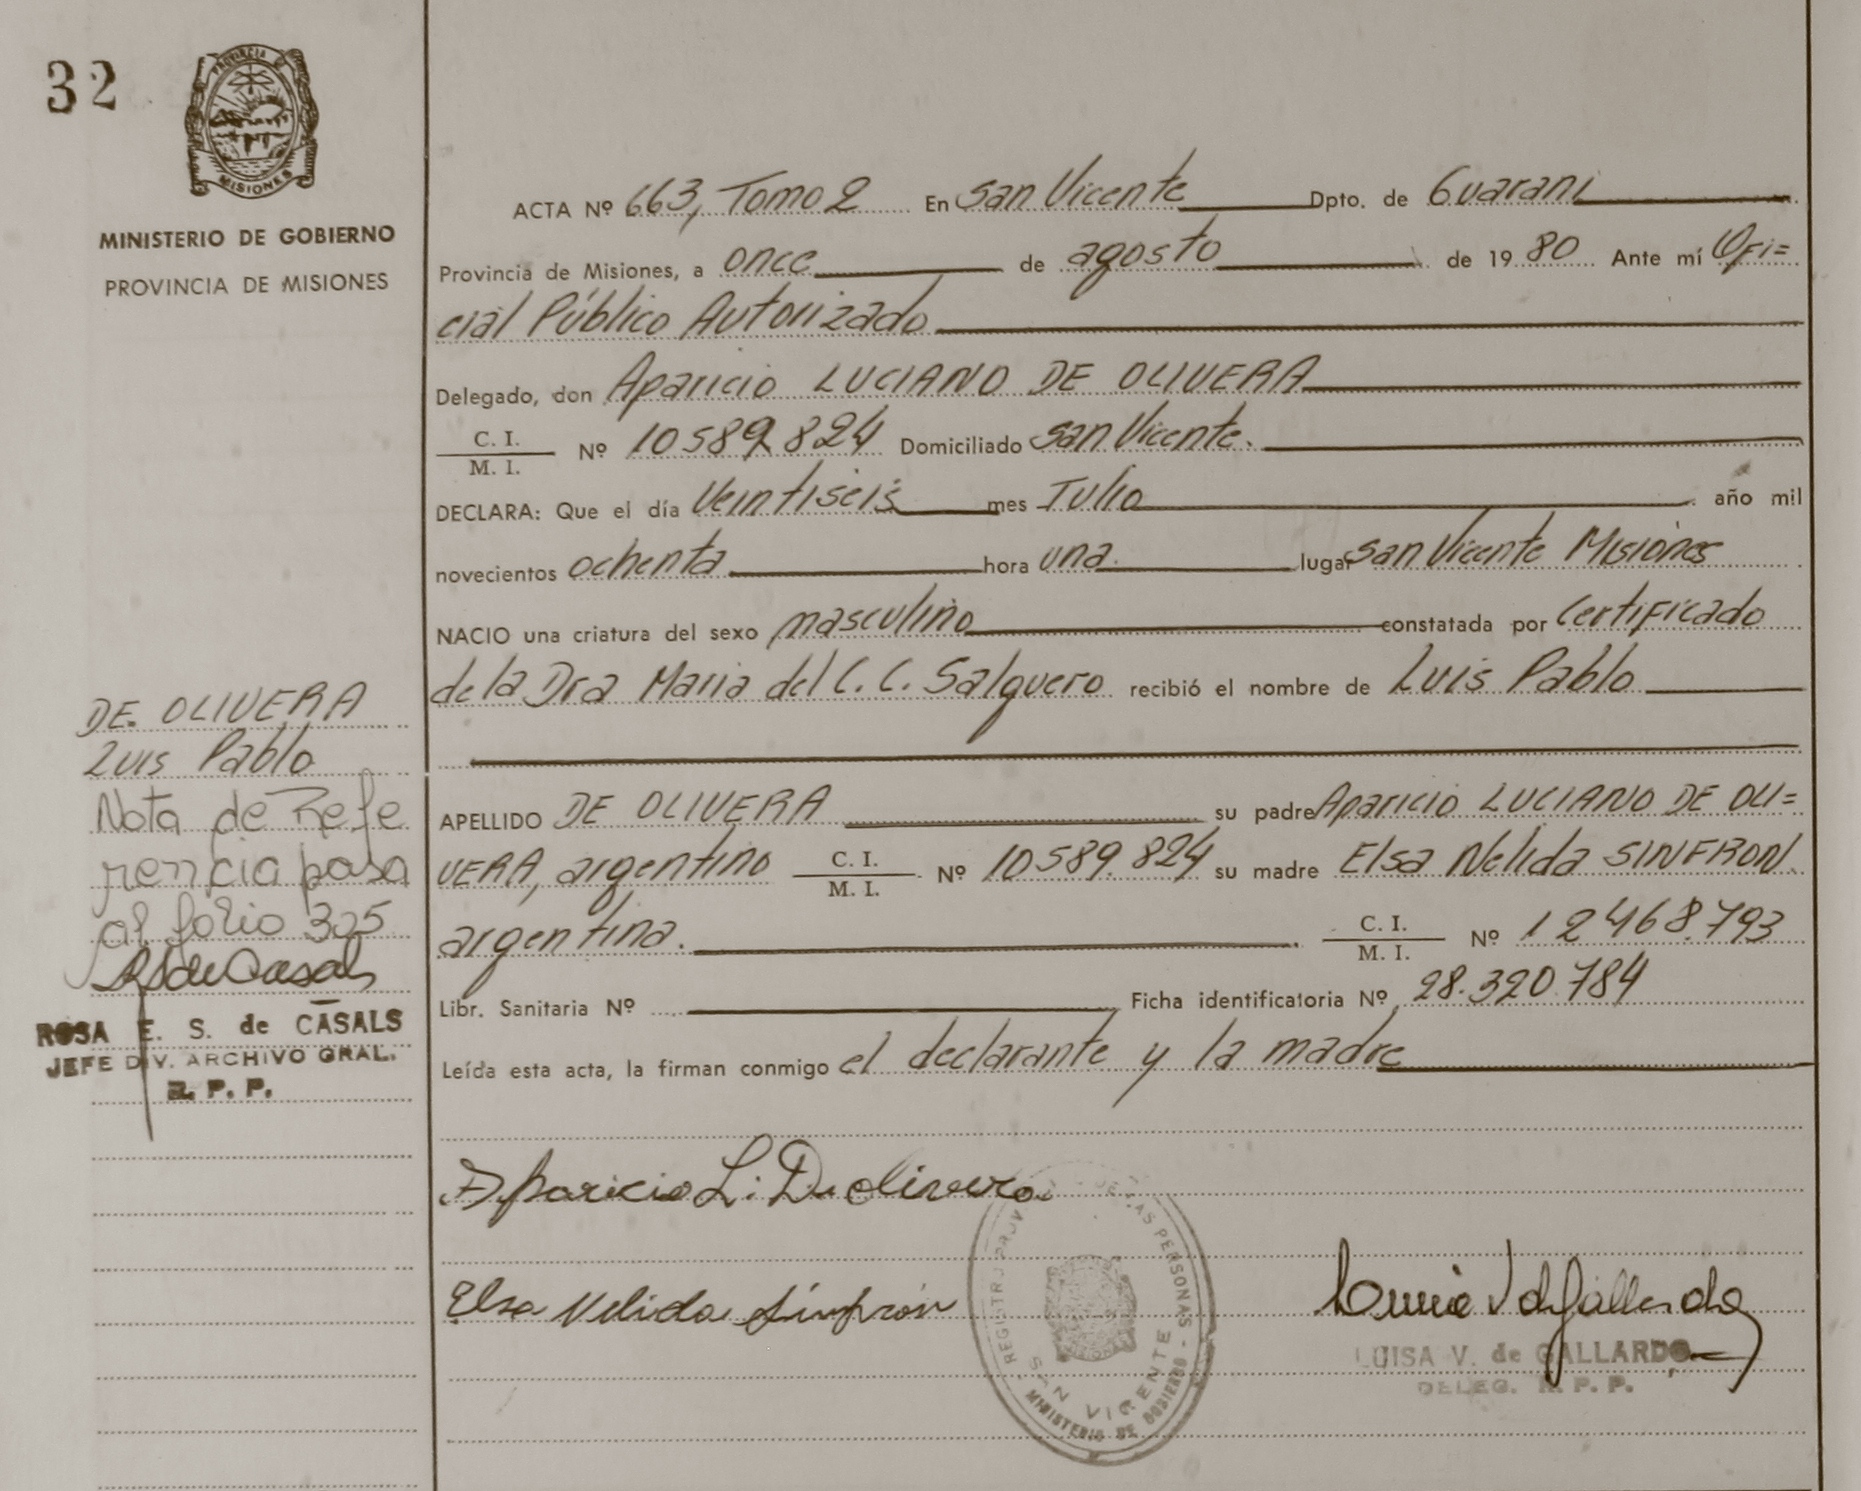 32
PROVINCIA DE
MISIONES
MINISTERIO DE GOBIERNO
PROVINCIA DE MISIONES
ACTA Nº 663, Tomo 2 En San Vicente Dpto. de Guarani
Provincia de Misiones, a once de agosto de 19 80 Ante mí Ofi=
cial Público Autorizado
Delegado, don Aparicio LUCIANO DE OLIVERA
C. I.
M. I. Nº 10589824 Domiciliado San Vicente.
DECLARA: Que el día Veintiseis mes Julio año mil
novecientos ochenta hora una lugar San Vicente Misiones
NACIO una criatura del sexo masculino constatada por Certificado
de la Dra Maria del C. C. Salguero recibió el nombre de Luis Pablo
APELLIDO DE OLIVERA su padre Aparicio LUCIANO DE OLI=
VERA, argentino C. I.
M. I. Nº 10589.824 su madre Elsa Nelida SINFRON
argentina. C. I.
M. I. Nº 12468.793
Libr. Sanitaria Nº Ficha identificatoria Nº 28.320.784
Leída esta acta, la firman conmigo el declarante y la madre
DE OLIVERA
Luis Pablo
Nota de Refe
rencia pasa
al folio 325
RSdeCasals
ROSA E. S. de CASALS
JEFE DIV. ARCHIVO GRAL.
R. P. P.
Aparicio L. De olivera
Elsa Nelida Sinfrón
REGISTRO PROV DE LAS PERSONAS
SAN VICENTE
MINISTERIO DE GOBIERNO
LUISA V. de GALLARDO
DELEG. R. P. P.